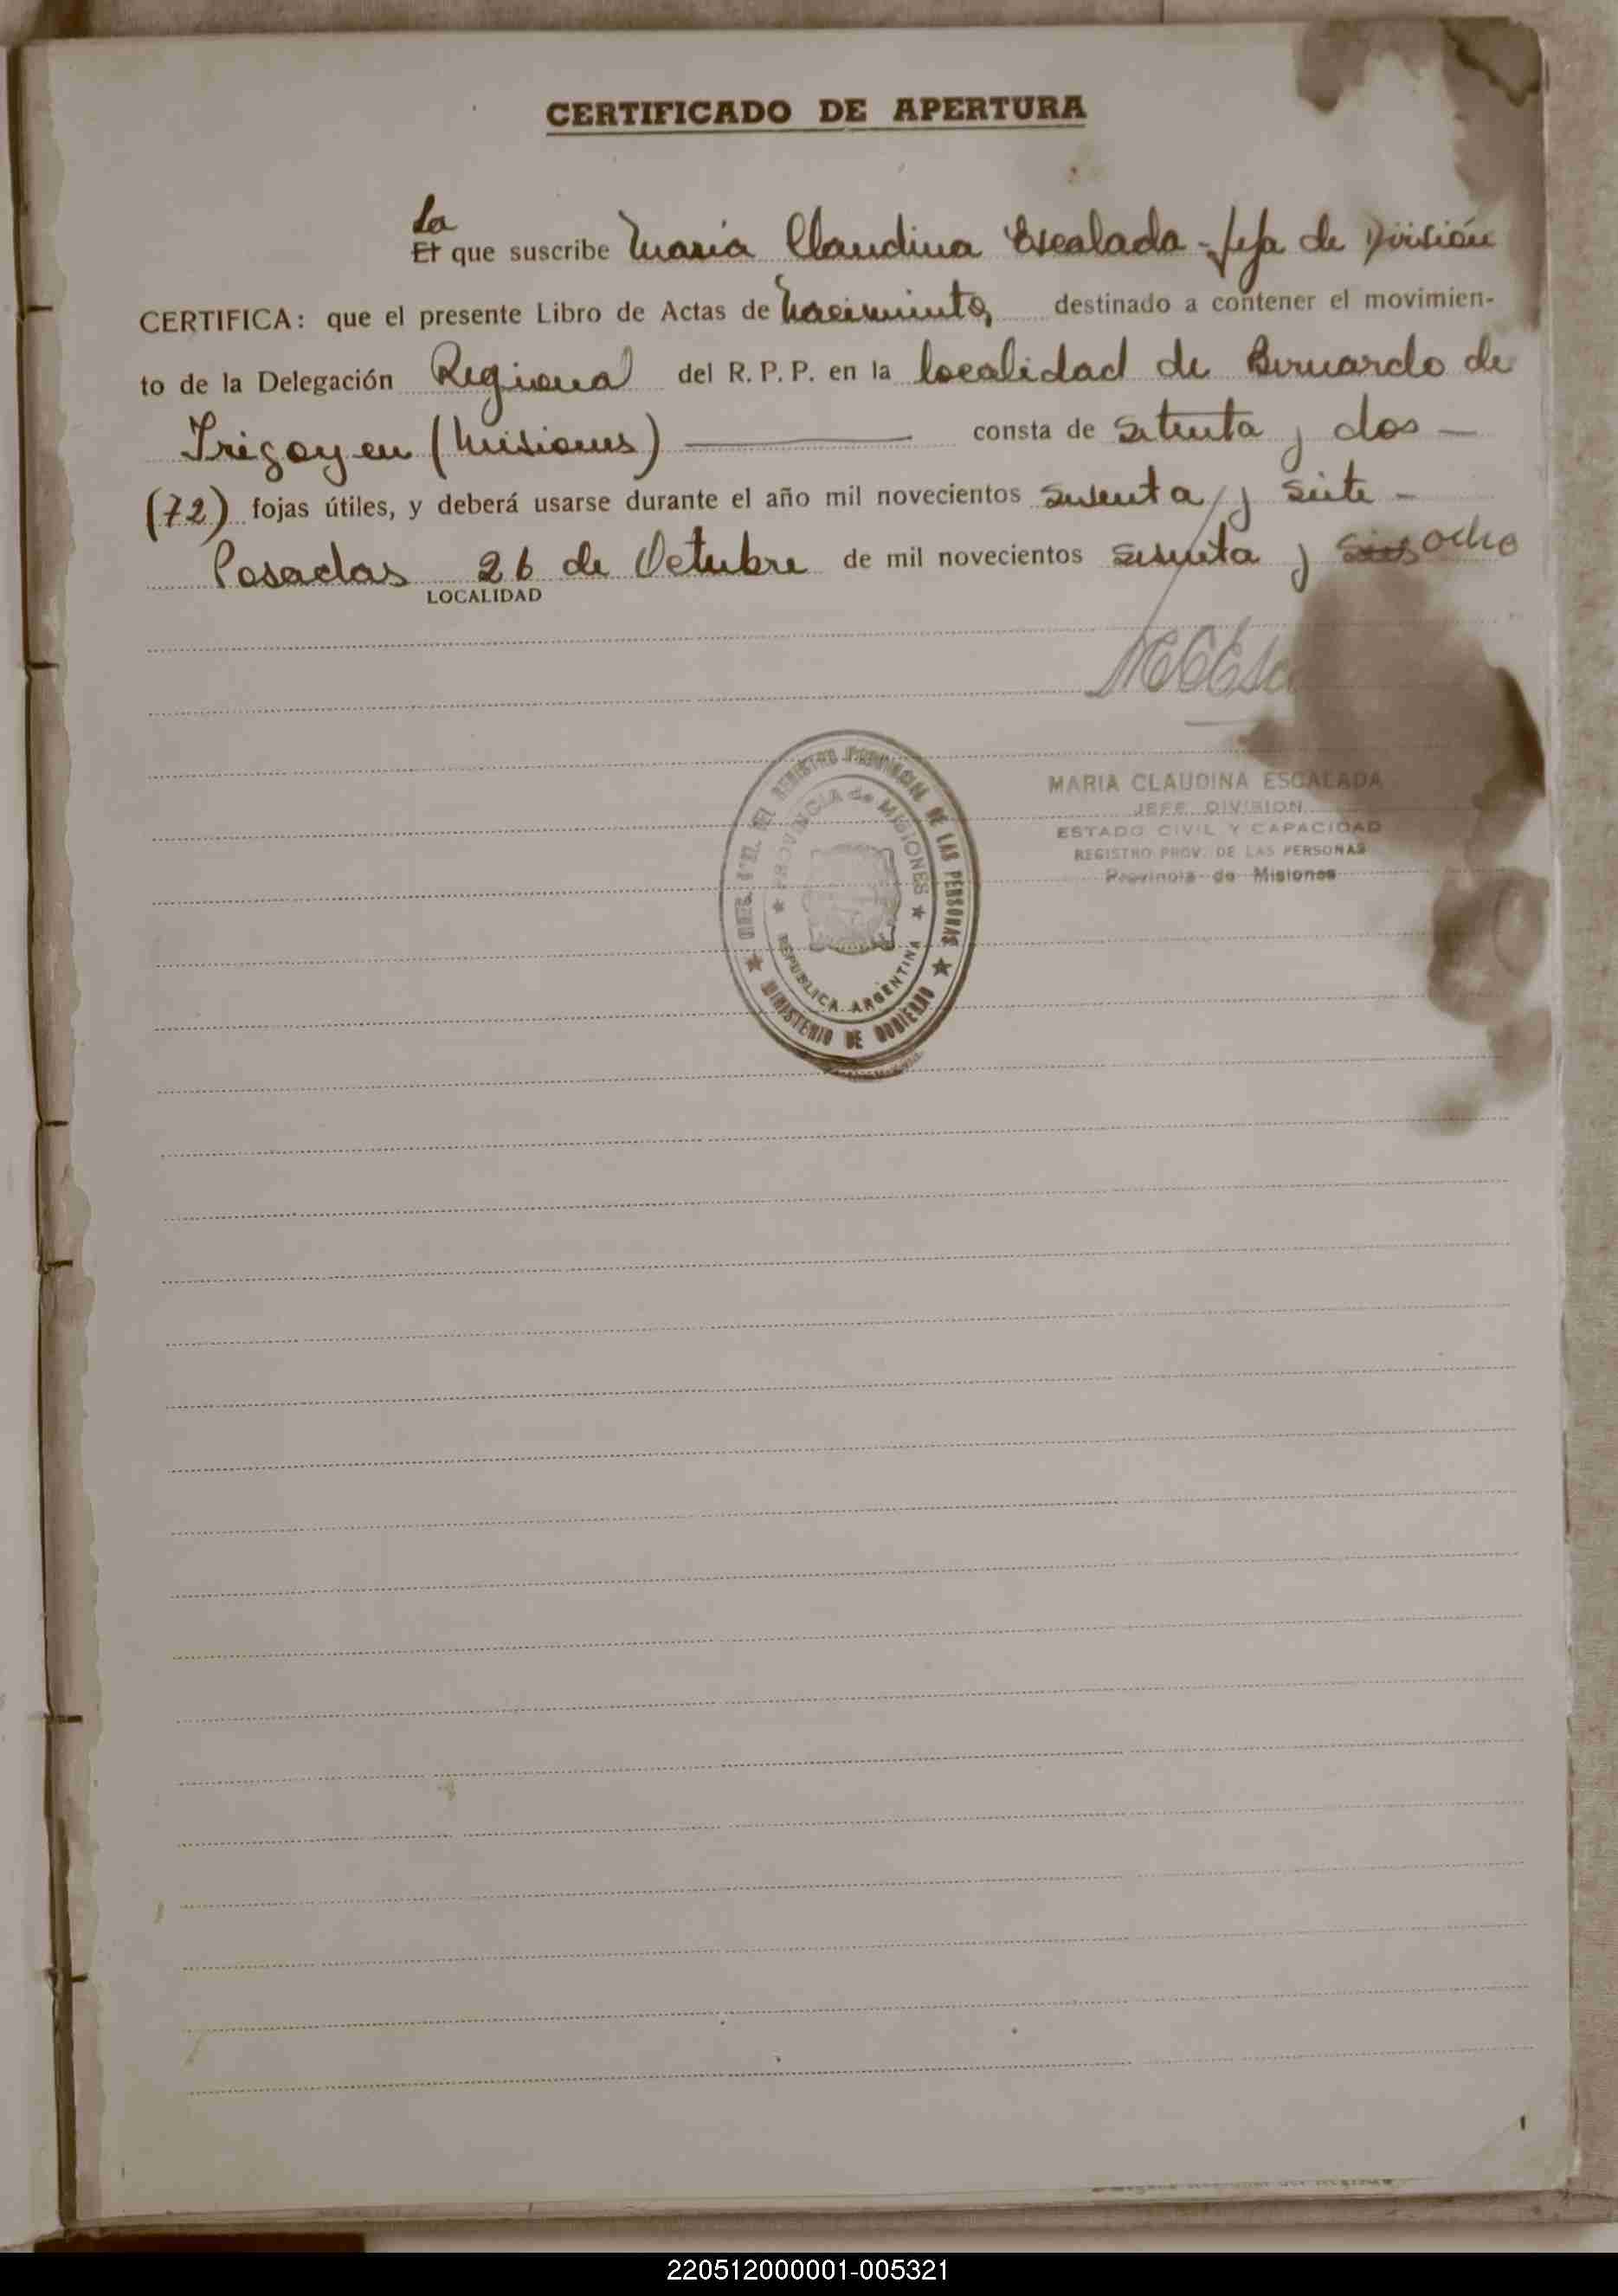 CERTIFICADO DE APERTURA
La
El que suscribe Maria Claudina Escalada - Jefa de División
CERTIFICA: que el presente Libro de Actas de Nacimiento, destinado a contener el movimien-
to de la Delegación Regional del R. P. P. en la localidad de Bernardo de
Irigoyen (Misiones) consta de setenta y dos -
(72) fojas útiles, y deberá usarse durante el año mil novecientos sesenta y siete -
Posadas 26 de Octubre de mil novecientos sesenta y seis ocho
LOCALIDAD
MARIA CLAUDINA ESCALADA
JEFE DIVISION
ESTADO CIVIL Y CAPACIDAD
REGISTRO PROV. DE LAS PERSONAS
Provincia de Misiones
DEL REGISTRO PROVINCIAL DE LAS PERSONAS
PROVINCIA de MISIONES
REPUBLICA ARGENTINA
MINISTERIO DE GOBIERNO
220512000001-005321